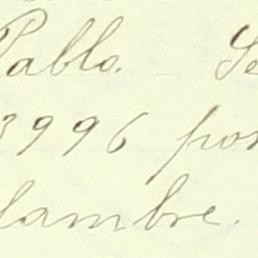 Pablo. Se
3996 por
lambre.